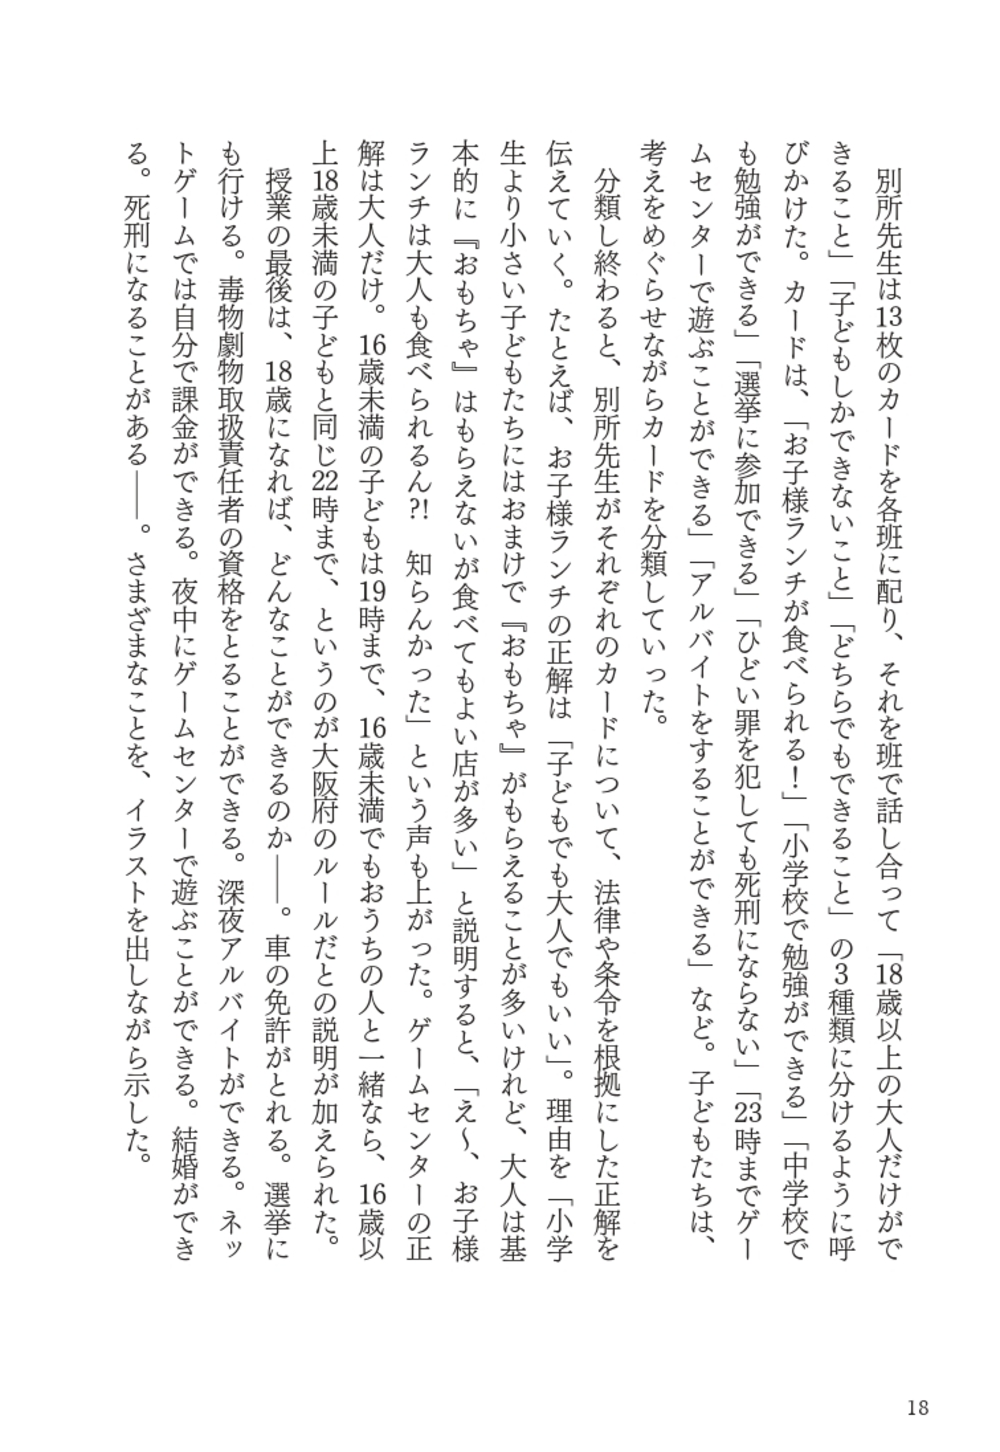 別所先生は13枚のカードを各班に配り、それを班で話し合って「18歳以上の大人だけがで
きること」「子どもしかできないこと」「どちらでもできること」の3種類に分けるように呼
びかけた。カードは、「お子様ランチが食べられる！」「小学校で勉強ができる」「中学校で
も勉強ができる」「選挙に参加できる」「ひどい罪を犯しても死刑にならない」「23時までゲー
ムセンターで遊ぶことができる」「アルバイトをすることができる」など。子どもたちは、
考えをめぐらせながらカードを分類していった。
　分類し終わると、別所先生がそれぞれのカードについて、法律や条令を根拠にした正解を
伝えていく。たとえば、お子様ランチの正解は「子どもでも大人でもいい」。理由を「小学
生より小さい子どもたちにはおまけで『おもちゃ』がもらえることが多いけれど、大人は基
本的に『おもちゃ』はもらえないが食べてもよい店が多い」と説明すると、「え〜、お子様
ランチは大人も食べられるん⁈　知らんかった」という声も上がった。ゲームセンターの正
解は大人だけ。16歳未満の子どもは19時まで、16歳未満でもおうちの人と一緒なら、16歳以
上18歳未満の子どもと同じ22時まで、というのが大阪府のルールだとの説明が加えられた。
　授業の最後は、18歳になれば、どんなことができるのか――。車の免許がとれる。選挙に
も行ける。毒物劇物取扱責任者の資格をとることができる。深夜アルバイトができる。ネッ
トゲームでは自分で課金ができる。夜中にゲームセンターで遊ぶことができる。結婚ができ
る。死刑になることがある――。さまざまなことを、イラストを出しながら示した。
18